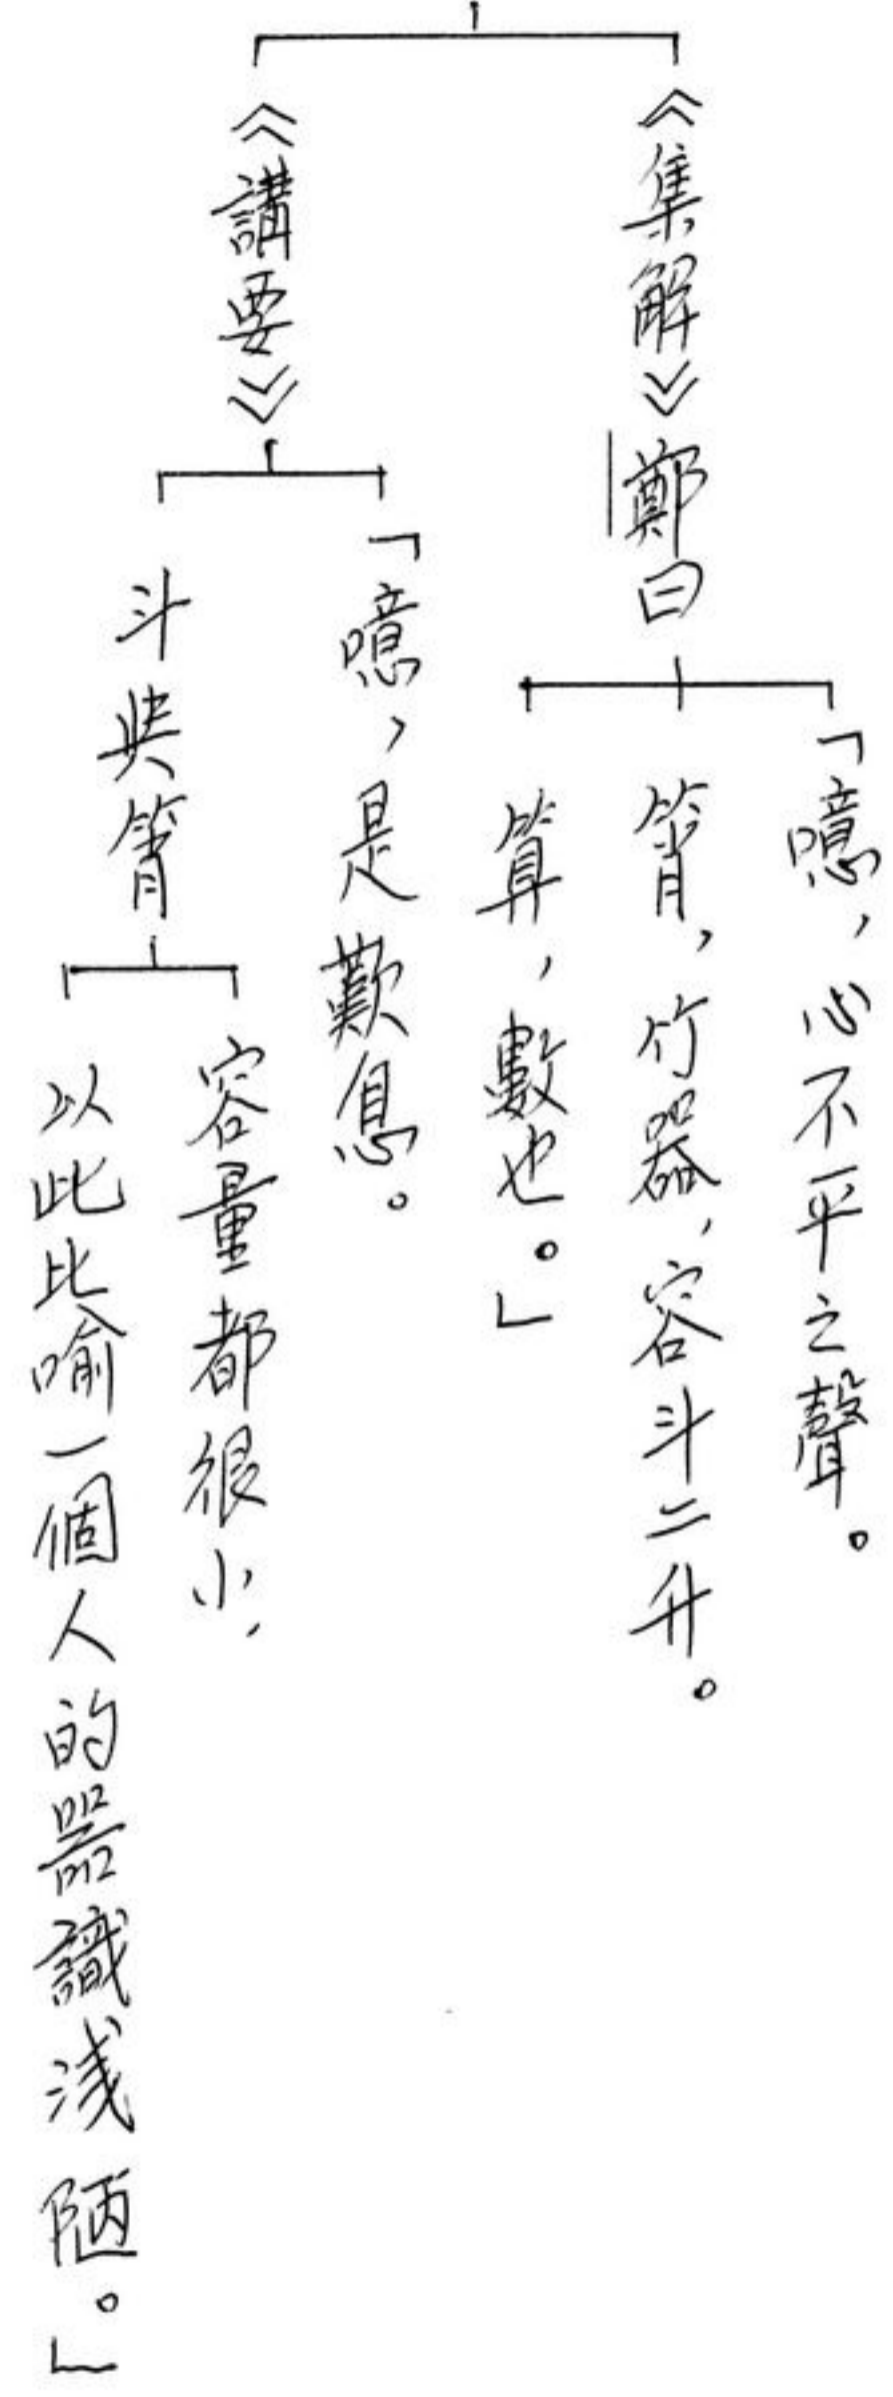 《集解》鄭曰
「噫，心不平之聲。
筲，竹器，容斗二升。
算，數也。」
《講要》
「噫，是歎息。
斗與筲
容量都很小，
以此比喻一個人的器識淺陋。」